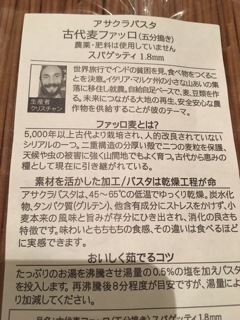 アサクラパスタ
古代麦ファッロ(五分搗き)
農薬・肥料は使用していません
スパゲッティ 1.8mm
世界旅行でインドの貧困を見、食べ物をつくるこ
とを決意。イタリア・マルケ州の小さな山あいの集
落に移住し就農。自給自足ベースで、麦、豆類を作
る。未来につながる大地の再生、安全安心な農
作物を供給することが彼のテーマ。
生産者
クリスチャン
ファッロ麦とは?
5,000年以上古代より栽培され、人的改良されていない
シリアルの一つ。二重構造の分厚い殻で二つの麦粒を保護、
天候や虫の被害に強く山間地でもよく育つ。古代から恵みの
糧として現在に引き継がれている。
素材を活かした加工/パスタは乾燥工程が命
アサクラパスタは、45~65℃の低温でゆっくり乾燥。炭水化
物、タンパク質(グルテン)、他含有成分にストレスをかけず、小
麦本来の風味と旨みが存分にひき出され、消化の良さも
特徴です。味わいともちもちの食感、その違いは食べるほど
に実感できます。
おいしく茹でるコツ
たっぷりのお湯を沸騰させ湯量の0.5%の塩を加えパスタ
を投入します。再沸騰後8分程度が目安ですが、湯量によ
り加減してください。
スパゲッティ 1.8mm